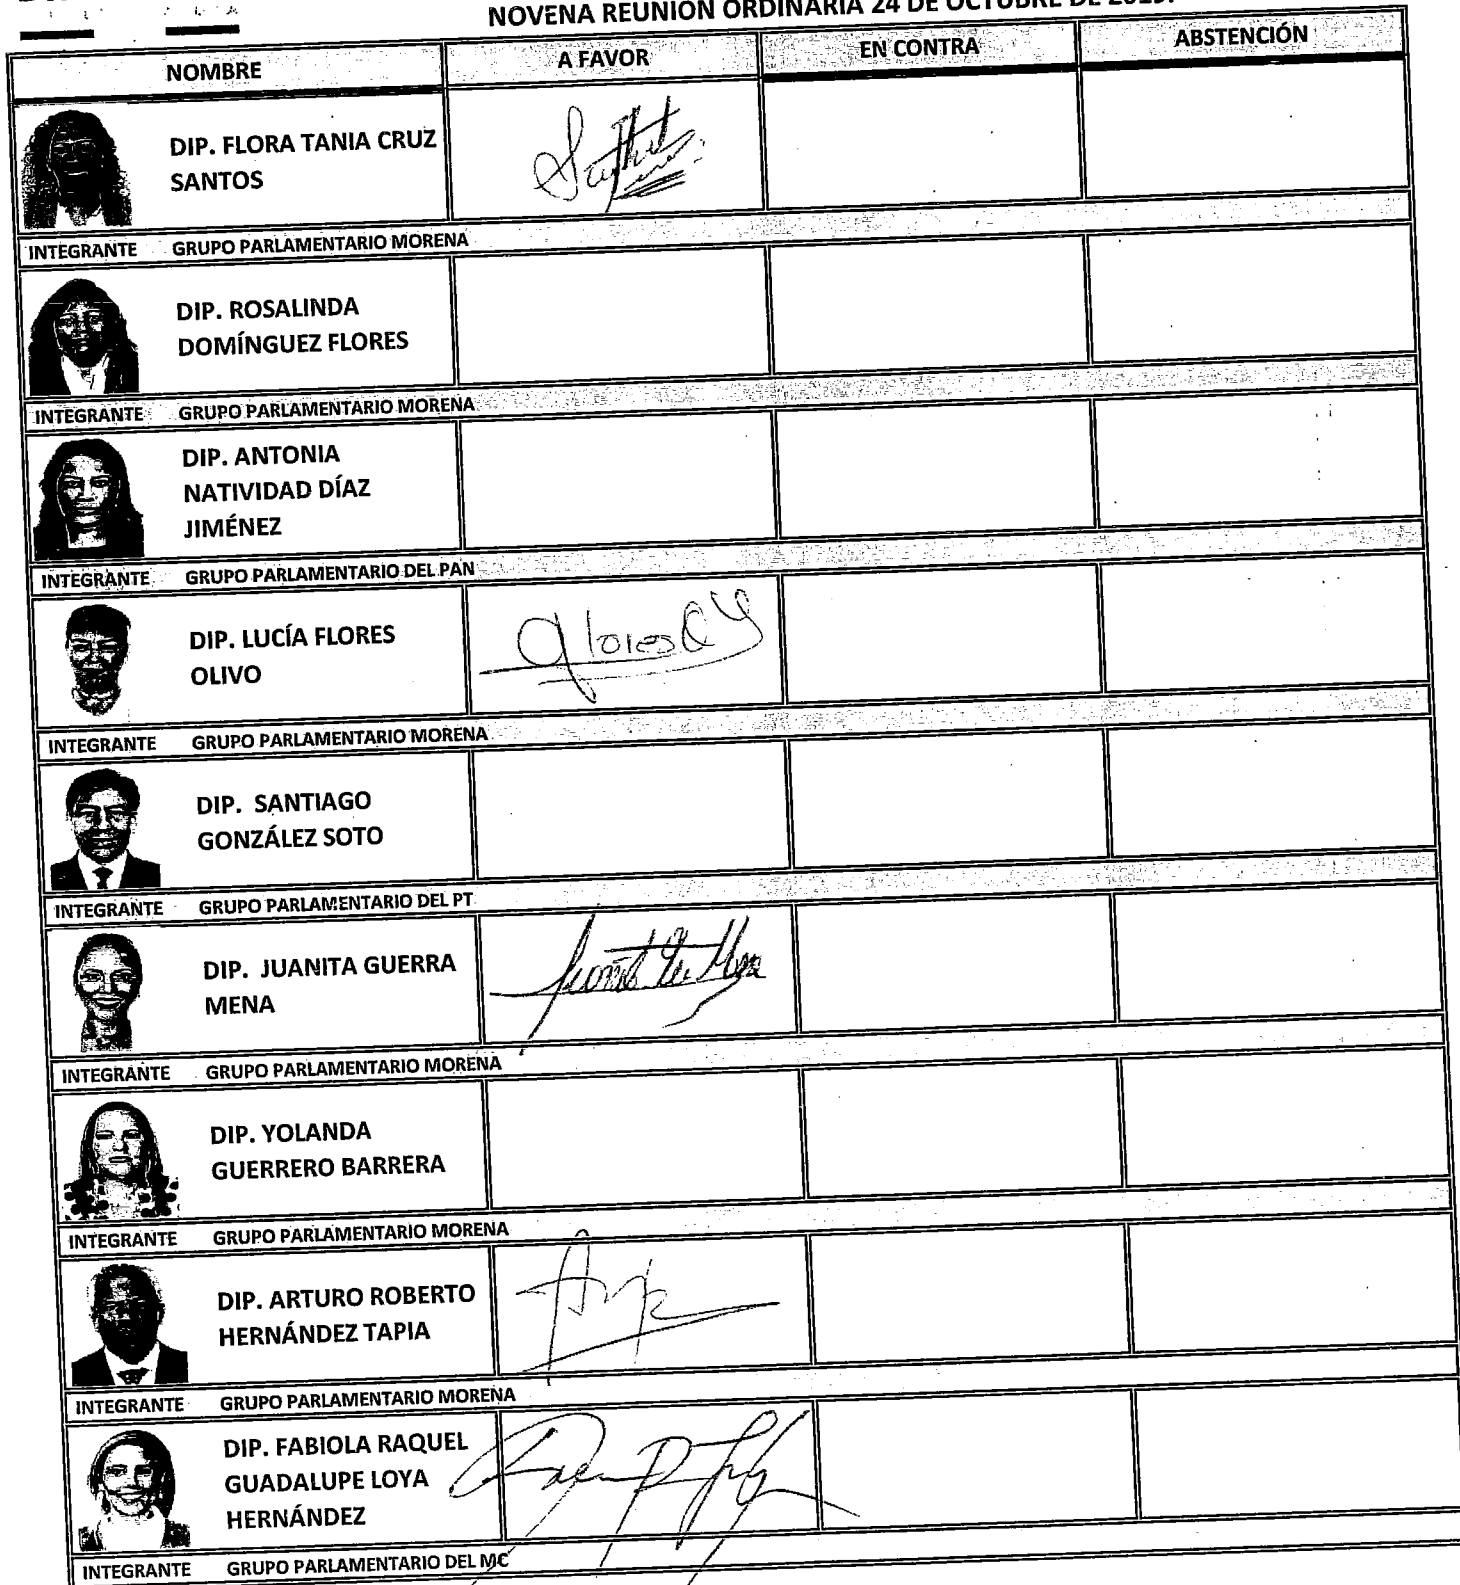 NOVENA REUNIÓN ORDINARIA 24 DE OCTUBRE DE 2019.
NOMBRE A FAVOR EN CONTRA ABSTENCIÓN
DIP. FLORA TANIA CRUZ
SANTOS
INTEGRANTE GRUPO PARLAMENTARIO MORENA
DIP. ROSALINDA
DOMÍNGUEZ FLORES
INTEGRANTE GRUPO PARLAMENTARIO MORENA
DIP. ANTONIA
NATIVIDAD DÍAZ
JIMÉNEZ
INTEGRANTE GRUPO PARLAMENTARIO DEL PAN
DIP. LUCÍA FLORES
OLIVO
INTEGRANTE GRUPO PARLAMENTARIO MORENA
DIP. SANTIAGO
GONZÁLEZ SOTO
INTEGRANTE GRUPO PARLAMENTARIO DEL PT
DIP. JUANITA GUERRA
MENA
INTEGRANTE GRUPO PARLAMENTARIO MORENA
DIP. YOLANDA
GUERRERO BARRERA
INTEGRANTE GRUPO PARLAMENTARIO MORENA
DIP. ARTURO ROBERTO
HERNÁNDEZ TAPIA
INTEGRANTE GRUPO PARLAMENTARIO MORENA
DIP. FABIOLA RAQUEL
GUADALUPE LOYA
HERNÁNDEZ
INTEGRANTE GRUPO PARLAMENTARIO DEL MC